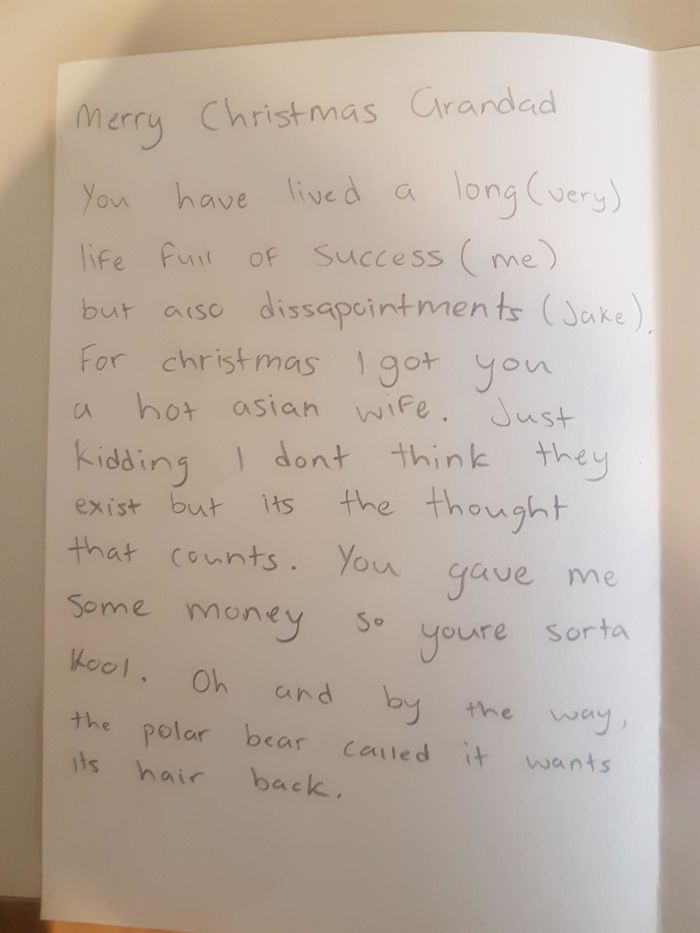 Merry Christmas Grandad
You have lived a long (very)
life full of success (me)
but also dissapointments (Jake).
For christmas I got you
a hot asian wife. Just
kidding I dont think they
exist but its the thought
that counts. You gave me
some money so youre sorta
kool. Oh and by the way,
the polar bear called it wants
its hair back.